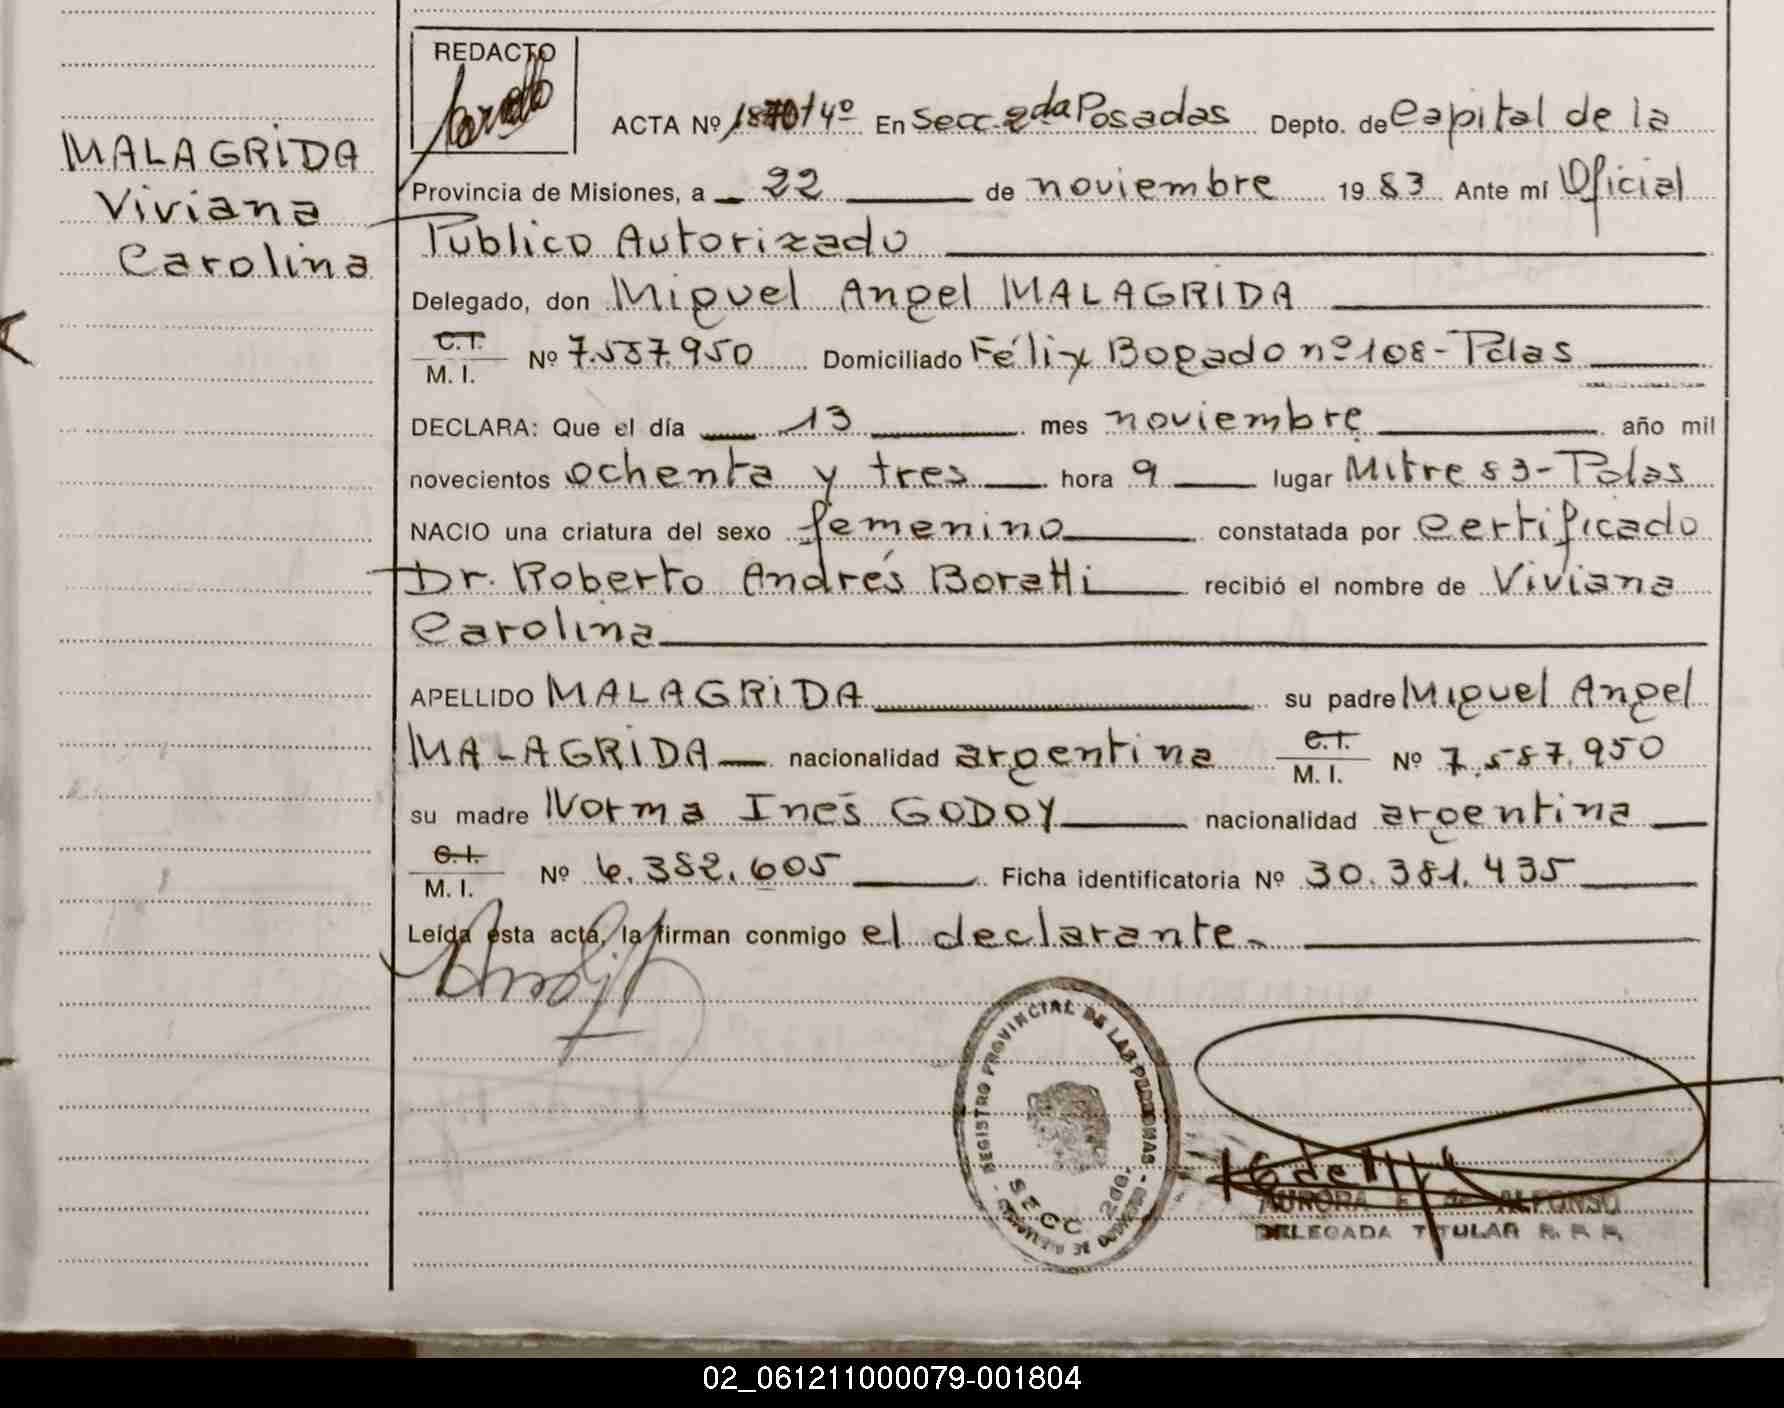 MALAGRIDA
Viviana
Carolina
REDACTO
ACTA Nº 1870 t 4º En Secc. 2da Posadas Depto. de Capital de la
Provincia de Misiones, a 22 de noviembre 1983 Ante mí Oficial
Público Autorizado
Delegado, don Miguel Angel MALAGRIDA
C.I. M. I. Nº 7.587.950 Domiciliado Félix Bogado nº 108 - Pdas
DECLARA: Que el día 13 mes noviembre año mil
novecientos ochenta y tres hora 9 lugar Mitre 83 - Pdas
NACIO una criatura del sexo femenino constatada por Certificado
Dr. Roberto Andrés Boratti recibió el nombre de Viviana
Carolina
APELLIDO MALAGRIDA su padre Miguel Angel
MALAGRIDA nacionalidad argentina C.I. M. I. Nº 7.587.950
su madre Norma Inés GODOY nacionalidad argentina
C.I. M. I. Nº 6.382.605 Ficha identificatoria Nº 30.381.435
Leída esta acta, la firman conmigo el declarante.
REGISTRO PROVINCIAL DE LAS PERSONAS
SECC 2da.
AURORA E. de ALFONSO
DELEGADA TITULAR R. P. P.
02_061211000079-001804